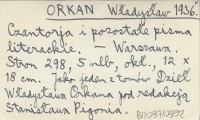 ORKAN Władysław 1936.
Czantorja i pozostałe pisma
literackie. – Warszawa.
Stron 298, 5 nlb, okł., 12 ×
18 cm. Jako jeden z tomów Dzieł
Władysława Orkana pod redakcją
Stanisława Pigonia.